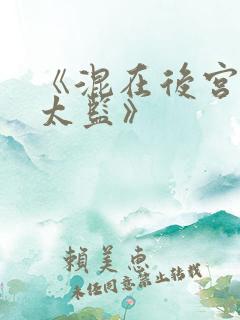 《混在後宮
太監》
賴美惠
未經同意禁止轉載